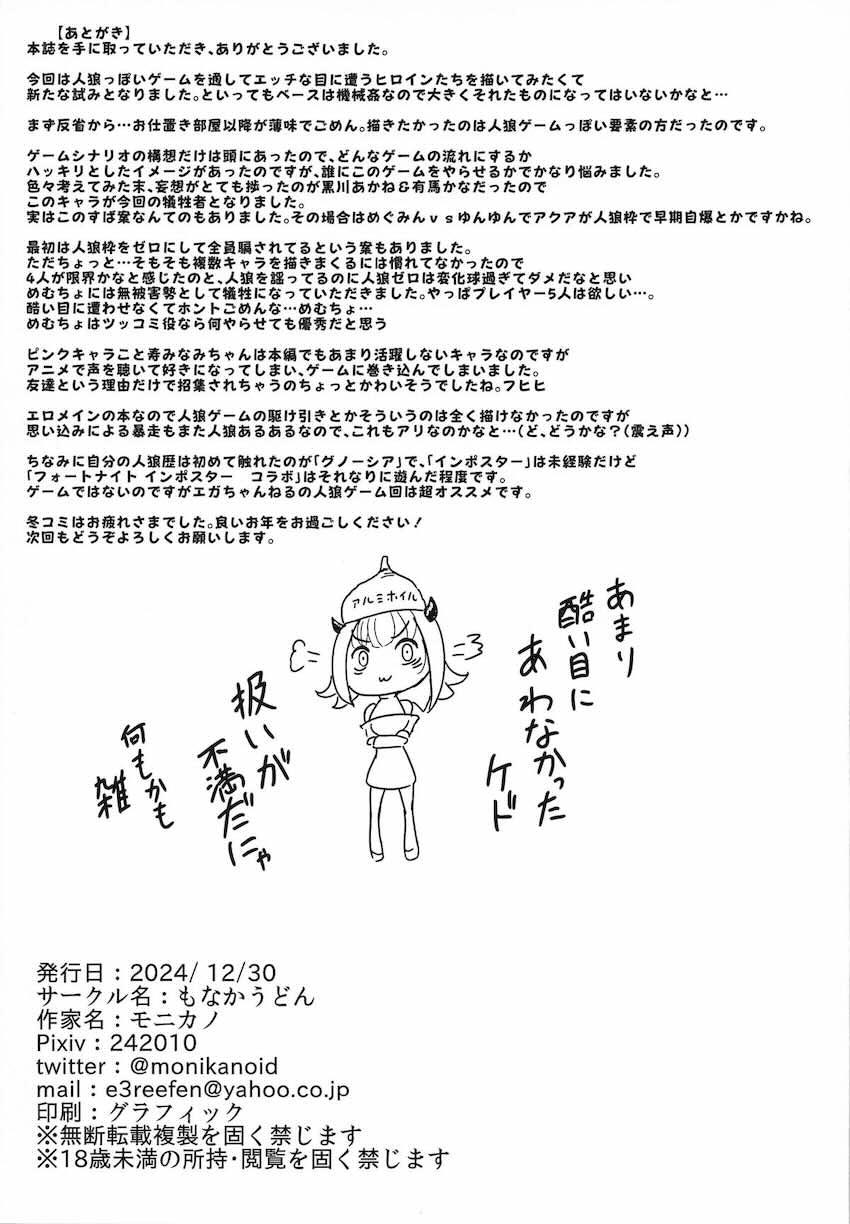 【あとがき】
本誌を手に取っていただき、ありがとうございました。
今回は人狼っぽいゲームを通してエッチな目に遭うヒロインたちを描いてみたくて
新たな試みとなりました。といってもベースは機械姦なので大きくそれたものになってはいないかなと…
まず反省から…お仕置き部屋以降が薄味でごめん。描きたかったのは人狼ゲームっぽい要素の方だったのです。
ゲームシナリオの構想だけは頭にあったので、どんなゲームの流れにするか
ハッキリとしたイメージがあったのですが、誰にこのゲームをやらせるかでかなり悩みました。
色々考えてみた末、妄想がとても捗ったのが黒川あかね&有馬かなだったので
このキャラが今回の犠牲者となりました。
実はこのすば案なんてのもありました。その場合はめぐみんvsゆんゆんでアクアが人狼枠で早期自爆とかですかね。
最初は人狼枠をゼロにして全員騙されてるという案もありました。
ただちょっと…そもそも複数キャラを描きまくるには慣れてなかったので
4人が限界かなと感じたのと、人狼を謳ってるのに人狼ゼロは変化球過ぎてダメだなと思い
めむちょには無被害勢として犠牲になっていただきました。やっぱプレイヤー5人は欲しい…。
酷い目に遭わせなくてホントごめんな…めむちょ…
めむちょはツッコミ役なら何やらせても優秀だと思う
ピンクキャラこと寿みなみちゃんは本編でもあまり活躍しないキャラなのですが
アニメで声を聴いて好きになってしまい、ゲームに巻き込んでしまいました。
友達という理由だけで招集されちゃうのちょっとかわいそうでしたね。フヒヒ
エロメインの本なので人狼ゲームの駆け引きとかそういうのは全く描けなかったのですが
思い込みによる暴走もまた人狼あるあるなので、これもアリなのかなと…(ど、どうかな?(震え声))
ちなみに自分の人狼歴は初めて触れたのが「グノーシア」で、「インポスター」は未経験だけど
「フォートナイト インポスター　コラボ」はそれなりに遊んだ程度です。
ゲームではないのですがエガちゃんねるの人狼ゲーム回は超オススメです。
冬コミはお疲れさまでした。良いお年をお過ごしください!
次回もどうぞよろしくお願いします。
アルミホイル
あまり
酷い目に
あわなかった
ケド
扱いが
不満だにゃ
何もかも
雑
発行日：2024/ 12/30
サークル名：もなかうどん
作家名：モニカノ
Pixiv：242010
twitter：@monikanoid
mail：e3reefen@yahoo.co.jp
印刷：グラフィック
※無断転載複製を固く禁じます
※18歳未満の所持・閲覧を固く禁じます